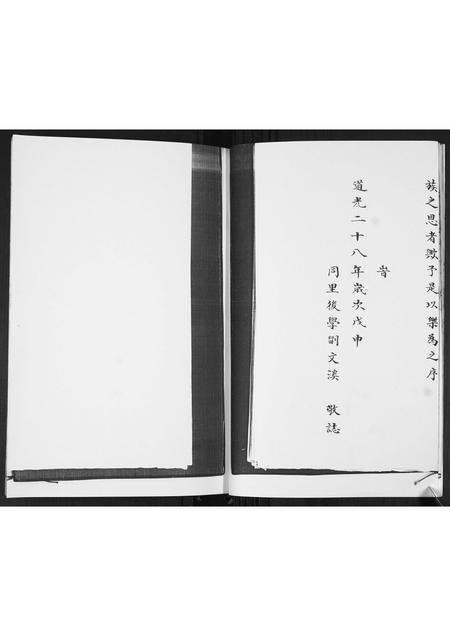 族之思者歟予是以樂為之序
旹
道光二十八年歲次戊申
同里後學劉文溪 敬誌